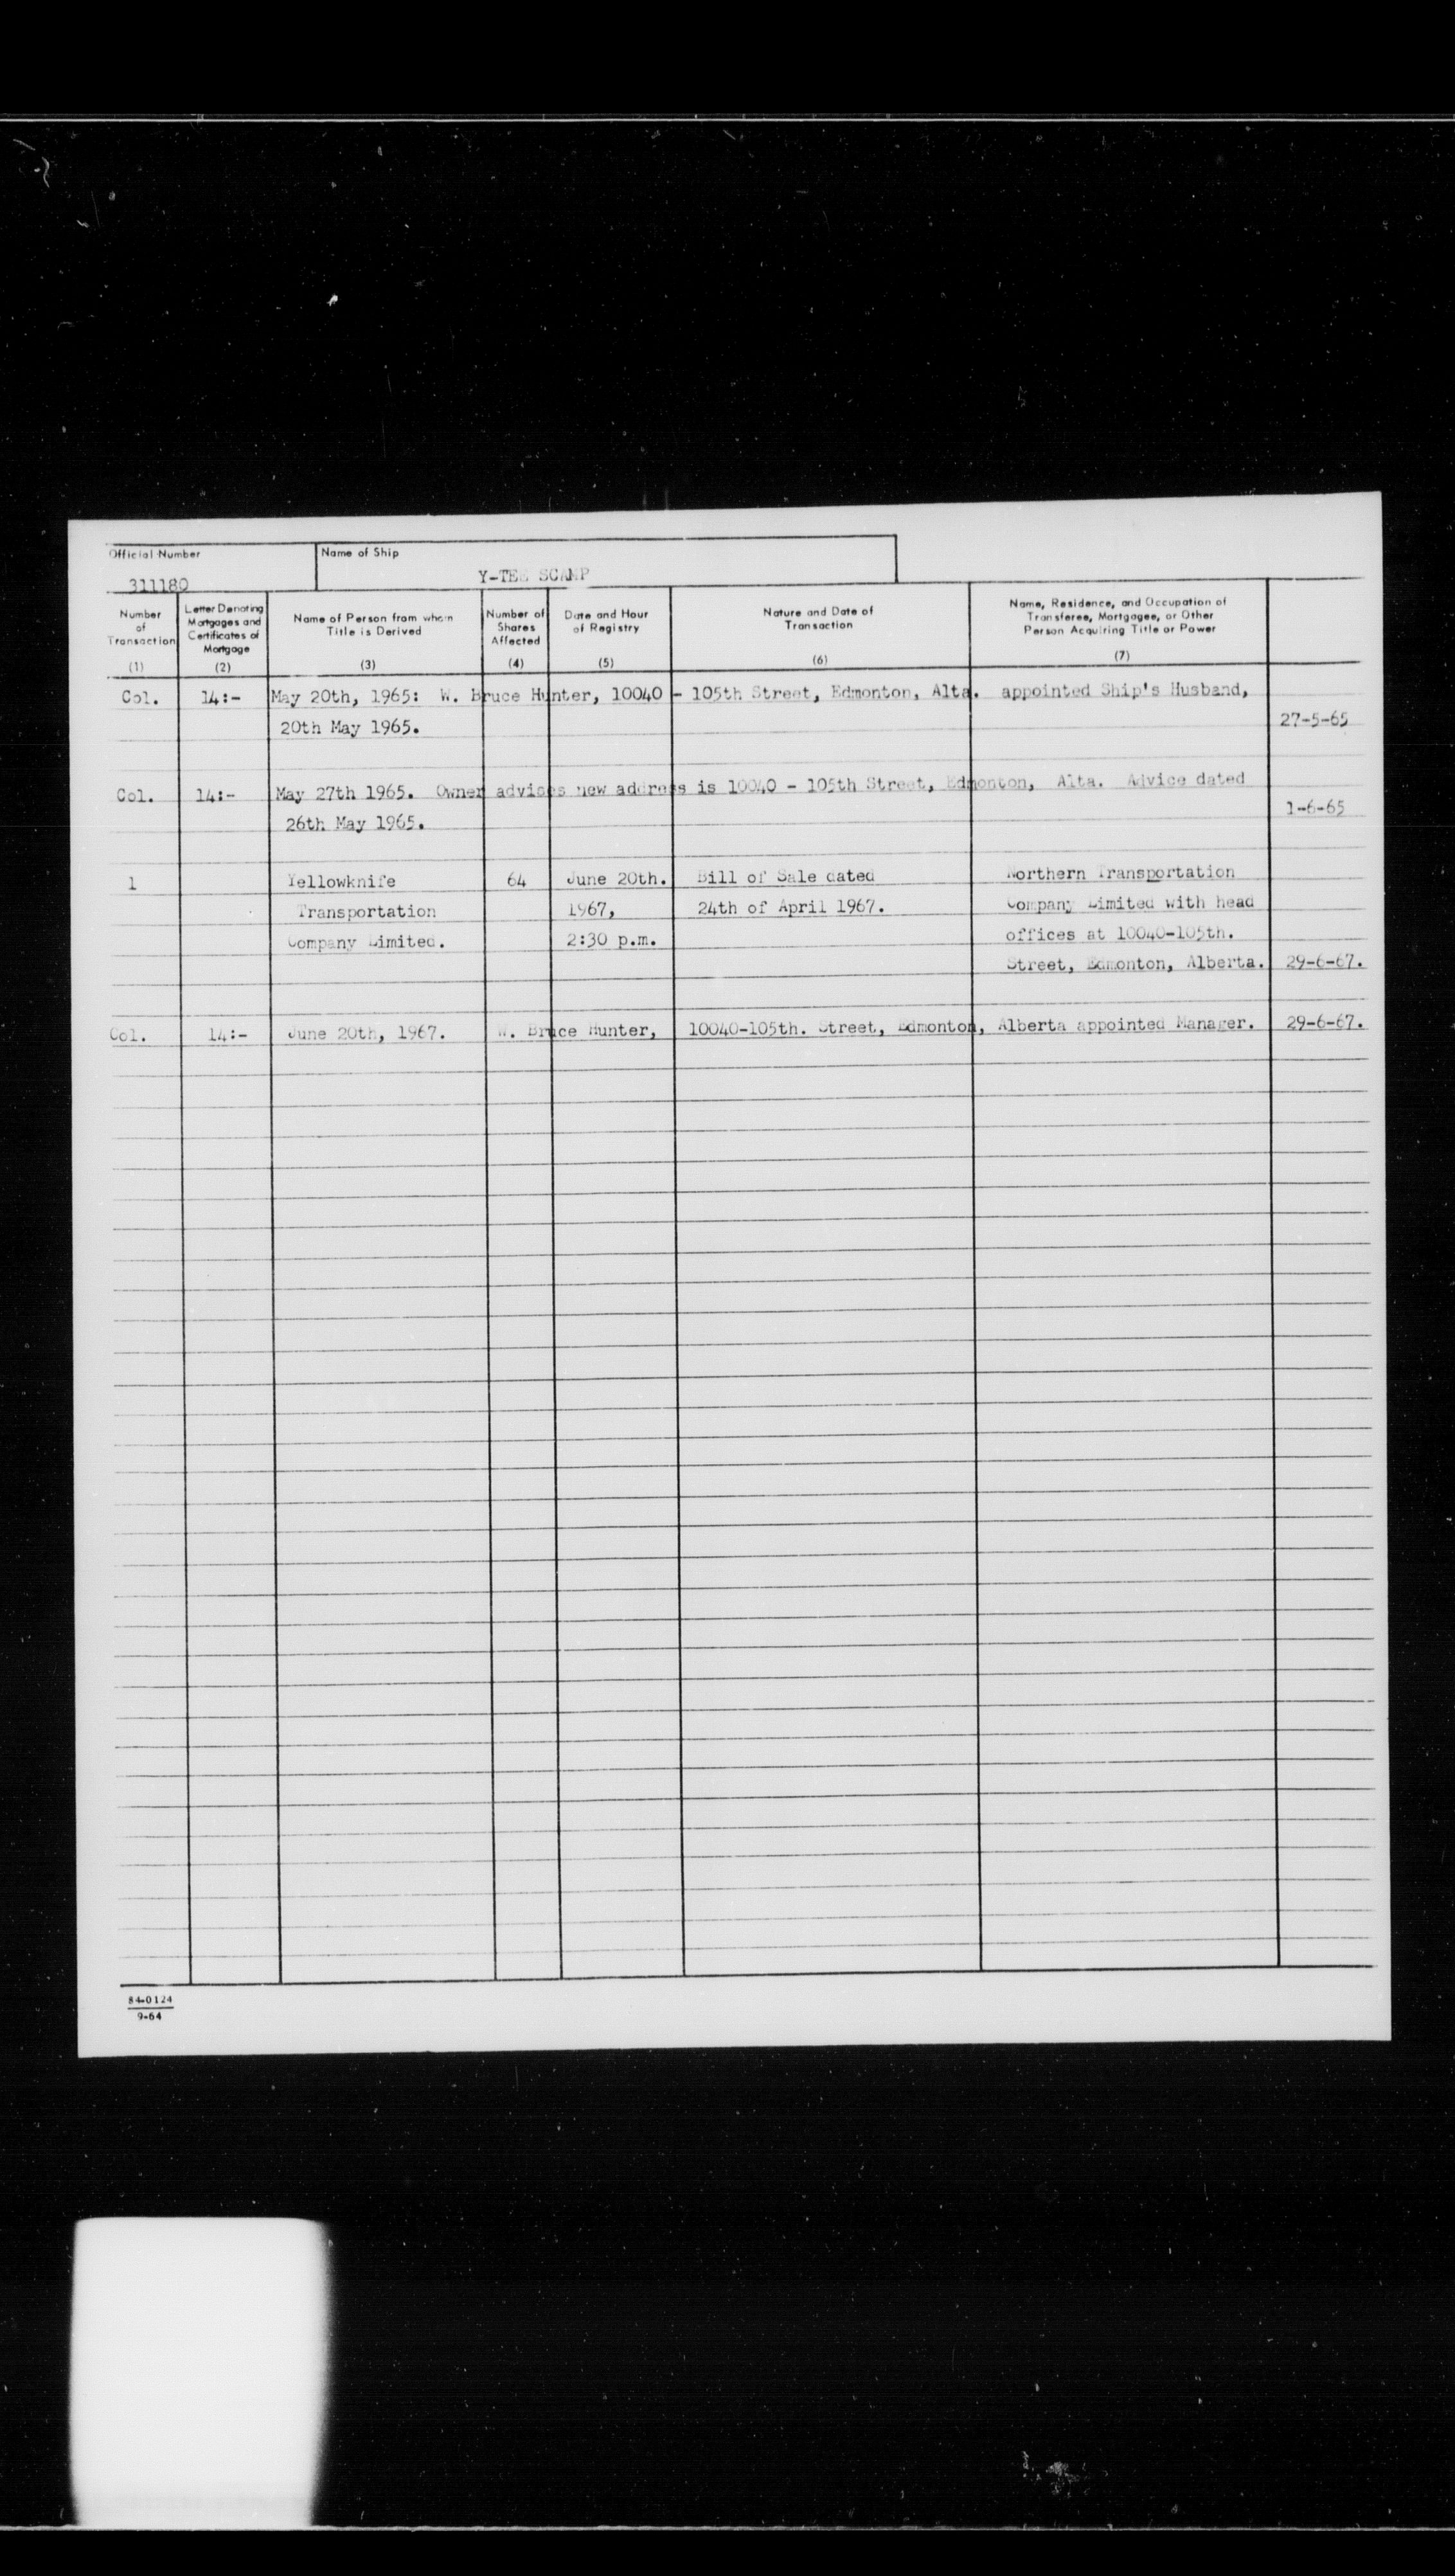 Official Number
Name of Ship
311180
Y-TEE SCAMP
Number of Transaction (1)
Letter Denoting Mortgages and Certificates of Mortgage (2)
Name of Person from whom Title is Derived (3)
Number of Shares Affected (4)
Date and Hour of Registry (5)
Nature and Date of Transaction (6)
Name, Residence, and Occupation of Transferee, Mortgagee, or Other Person Acquiring Title or Power (7)
Col. 14:- May 20th, 1965: W. Bruce Hunter, 10040 - 105th Street, Edmonton, Alta. appointed Ship's Husband,
20th May 1965. 27-5-65
Col. 14:- May 27th 1965. Owner advises new address is 10040 - 105th Street, Edmonton, Alta. Advice dated
26th May 1965. 1-6-65
1 Yellowknife 64 June 20th. Bill of Sale dated Northern Transportation
Transportation 1967, 24th of April 1967. Company Limited with head
Company Limited. 2:30 p.m. offices at 10040-105th.
Street, Edmonton, Alberta. 29-6-67.
Col. 14:- June 20th, 1967. W. Bruce Hunter, 10040-105th. Street, Edmonton, Alberta appointed Manager. 29-6-67.
84-0124
9-64